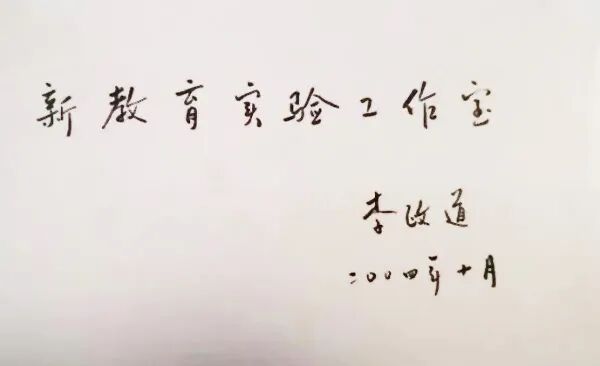 新教育实验工作室
李政道
二〇〇四年十月